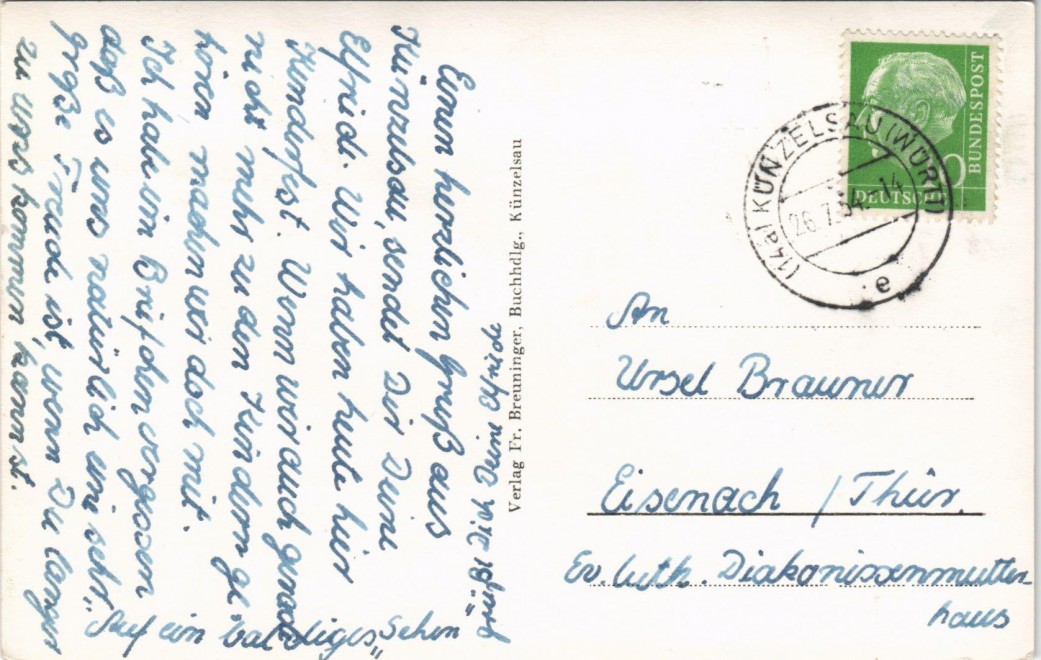 Einen herzlichen Gruß aus
Künzelsau, sendet Dir Deine
Elfriede. Wir haben heute hier
Kinderfest. Wenn wir auch gerade
nicht mehr zu den Kindern ge-
hören machen wir doch mit.
Ich habe im Briefchen vergessen
daß es uns natürlich eine sehr
große Freude ist, wenn Du länger
zu uns kommen kannst.
"Auf ein baldiges" Sehen"
Deine Elfriede
Verlag Fr. Breuninger, Buchhdlg., Künzelsau
BUNDESPOST
DEUTSCHE
(14a) KÜNZELSAU (WÜRTT)
26.7.54-14
e
An
Ursel Brauner
Eisenach / Thür.
Ev. luth. Diakonissenmutter-
haus